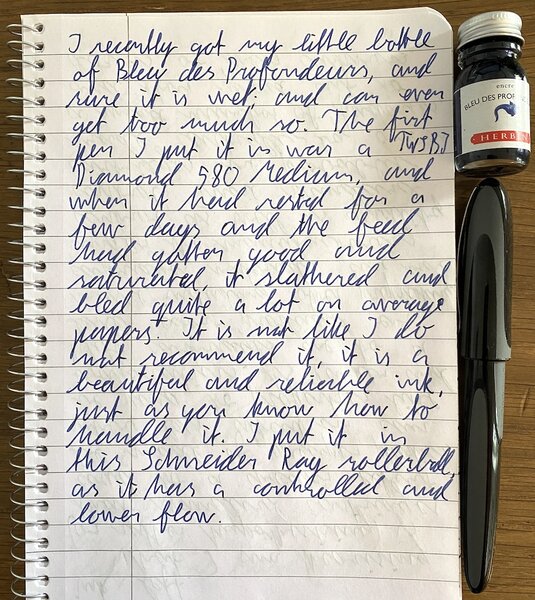 I recently got my little bottle
of Bleu des Profondeurs, and
sure it is wet and can even
get too much so. The first
pen I put it in was a TWSBI
Diamond 580 Medium, and
when it had rested for a
few days and the feed
had gotten good and
saturated, it slathered and
bled quite a lot on average
papers. It is not like I do
not recommend it, it is a
beautiful and reliable ink,
just as you know how to
handle it. I put it in
this Schneider Ray rollerball,
as it has a controlled and
lower flow.
encre
BLEU DES PROF
HERBIN